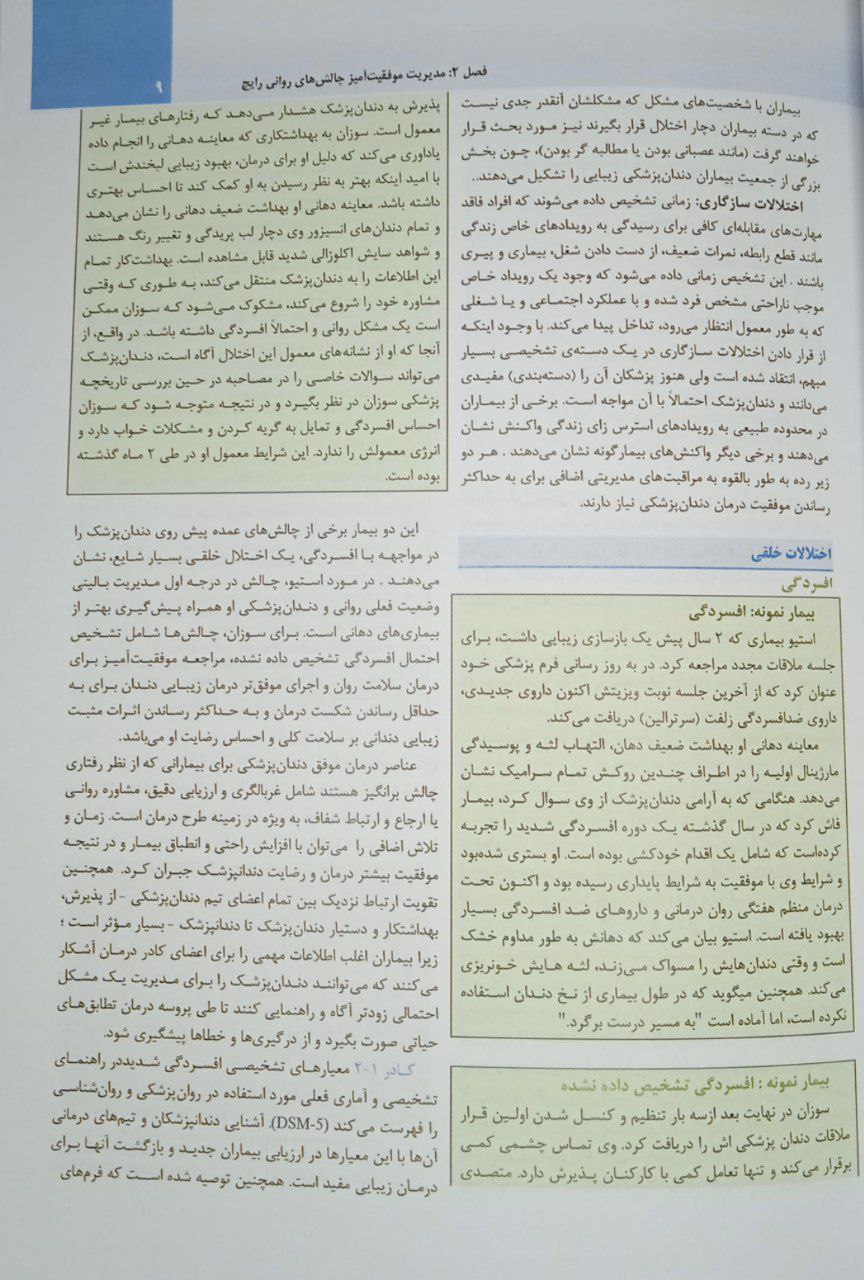 فصل ۲: مدیریت موفقیت‌آمیز چالش‌های روانی رایج
۹
بیماران با شخصیت‌های مشکل که مشکلشان آنقدر جدی نیست
که در دسته بیماران دچار اختلال قرار بگیرند نیز مورد بحث قرار
خواهند گرفت (مانند عصبانی بودن یا مطالبه گر بودن)، چون بخش
بزرگی از جمعیت بیماران دندان‌پزشکی زیبایی را تشکیل می‌دهند..
اختلالات سازگاری: زمانی تشخیص داده می‌شوند که افراد فاقد
مهارت‌های مقابله‌ای کافی برای رسیدگی به رویدادهای خاص زندگی
مانند قطع رابطه، نمرات ضعیف، از دست دادن شغل، بیماری و پیری
باشند . این تشخیص زمانی داده می‌شود که وجود یک رویداد خاص
موجب ناراحتی مشخص فرد شده و با عملکرد اجتماعی و یا شغلی
که به طور معمول انتظار می‌رود، تداخل پیدا می‌کند. با وجود اینکه
از قرار دادن اختلالات سازگاری در یک دسته‌ی تشخیصی بسیار
مبهم، انتقاد شده است ولی هنوز پزشکان آن را (دسته‌بندی) مفیدی
می‌دانند و دندان‌پزشک احتمالاً با آن مواجه است. برخی از بیماران
در محدوده طبیعی به رویدادهای استرس زای زندگی واکنش نشان
می‌دهند و برخی دیگر واکنش‌های بیمارگونه نشان می‌دهند . هر دو
زیر رده به طور بالقوه به مراقبت‌های مدیریتی اضافی برای به حداکثر
رساندن موفقیت درمان دندان‌پزشکی نیاز دارند.
اختلالات خلقی
افسردگی
بیمار نمونه: افسردگی
استیو بیماری که ۲ سال پیش یک بازسازی زیبایی داشت، برای
جلسه ملاقات مجدد مراجعه کرد. در به روز رسانی فرم پزشکی خود
عنوان کرد که از آخرین جلسه نوبت ویزیتش اکنون داروی جدیدی،
داروی ضدافسردگی زلفت (سرترالین) دریافت می‌کند.
معاینه دهانی او بهداشت ضعیف دهان، التهاب لثه و پوسیدگی
مارژینال اولیه را در اطراف چندین روکش تمام سرامیک نشان
می‌دهد. هنگامی که به آرامی دندان‌پزشک از وی سوال کرد، بیمار
فاش کرد که در سال گذشته یک دوره افسردگی شدید را تجربه
کرده‌است که شامل یک اقدام خودکشی بوده است. او بستری شده‌بود
و شرایط وی با موفقیت به شرایط پایداری رسیده بود و اکنون تحت
درمان منظم هفتگی روان درمانی و داروهای ضد افسردگی بسیار
بهبود یافته است. استیو بیان می‌کند که دهانش به طور مداوم خشک
است و وقتی دندان‌هایش را مسواک می‌زند، لثه هایش خونریزی
می‌کند. همچنین میگوید که در طول بیماری از نخ دندان استفاده
نکرده است، اما آماده است "به مسیر درست برگرد."
بیمار نمونه : افسردگی تشخیص داده نشده
سوزان در نهایت بعد ازسه بار تنظیم و کنسل شدن اولین قرار
ملاقات دندان پزشکی اش را دریافت کرد. وی تماس چشمی کمی
برقرار می‌کند و تنها تعامل کمی با کارکنان پذیرش دارد. متصدی
پذیرش به دندان‌پزشک هشدار می‌دهد که رفتارهای بیمار غیر
معمول است. سوزان به بهداشتکاری که معاینه دهانی را انجام داده
یاداوری می‌کند که دلیل او برای درمان، بهبود زیبایی لبخندش است
با امید اینکه بهتر به نظر رسیدن به او کمک کند تا احساس بهتری
داشته باشد. معاینه دهانی او بهداشت ضعیف دهانی را نشان می‌دهد
و تمام دندان‌های انسیزور وی دچار لب پریدگی و تغییر رنگ هستند
و شواهد سایش اکلوزالی شدید قابل مشاهده است. بهداشت‌کار تمام
این اطلاعات را به دندان‌پزشک منتقل می‌کند، به طوری که وقتی
مشاوره خود را شروع می‌کند، مشکوک می‌شود که سوزان ممکن
است یک مشکل روانی و احتمالاً افسردگی داشته باشد. در واقع، از
آنجا که او از نشانه‌های معمول این اختلال آگاه است، دندان‌پزشک
می‌تواند سوالات خاصی را در مصاحبه در حین بررسی تاریخچه
پزشکی سوزان در نظر بگیرد و در نتیجه متوجه شود که سوزان
احساس افسردگی و تمایل به گریه کردن و مشکلات خواب دارد و
انرژی معمولش را ندارد. این شرایط معمول او در طی ۲ ماه گذشته
بوده است.
این دو بیمار برخی از چالش‌های عمده پیش روی دندان‌پزشک را
در مواجهه با افسردگی، یک اختلال خلقی بسیار شایع، نشان
می‌دهند . در مورد استیو، چالش در درجه اول مدیریت بالینی
وضعیت فعلی روانی و دندان‌پزشکی او همراه پیش‌گیری بهتر از
بیماری‌های دهانی است. برای سوزان، چالش‌ها شامل تشخیص
احتمال افسردگی تشخیص داده نشده، مراجعه موفقیت‌آمیز برای
درمان سلامت روان و اجرای موفق‌تر درمان زیبایی دندان برای به
حداقل رساندن شکست درمان و به حداکثر رساندن اثرات مثبت
زیبایی دندانی بر سلامت کلی و احساس رضایت او می‌باشد.
عناصر درمان موفق دندان‌پزشکی برای بیمارانی که از نظر رفتاری
چالش برانگیز هستند شامل غربالگری و ارزیابی دقیق، مشاوره روانی
یا ارجاع و ارتباط شفاف، به ویژه در زمینه طرح درمان است. زمان و
تلاش اضافی را می‌توان با افزایش راحتی و انطباق بیمار و در نتیجه
موفقیت بیشتر درمان و رضایت دندانپزشک جبران کرد. همچنین
تقویت ارتباط نزدیک بین تمام اعضای تیم دندان‌پزشکی -از پذیرش،
بهداشتکار و دستیار دندان‌پزشک تا دندانپزشک -بسیار مؤثر است ؛
زیرا بیماران اغلب اطلاعات مهمی را برای اعضای کادر درمان آشکار
می‌کنند که می‌توانند دندان‌پزشک را برای مدیریت یک مشکل
احتمالی زودتر آگاه و راهنمایی کنند تا طی پروسه درمان تطابق‌های
حیاتی صورت بگیرد و از درگیری‌ها و خطاها پیشگیری شود.
کادر ۱-۲ معیارهای تشخیصی افسردگی شدیددر راهنمای
تشخیصی و آماری فعلی مورد استفاده در روان‌پزشکی و روان‌شناسی
را فهرست می‌کند (DSM-5). آشنایی دندانپزشکان و تیم‌های درمانی
آن‌ها با این معیارها در ارزیابی بیماران جدید و بازگشت آنها برای
درمان زیبایی مفید است. همچنین توصیه شده است که فرم‌های